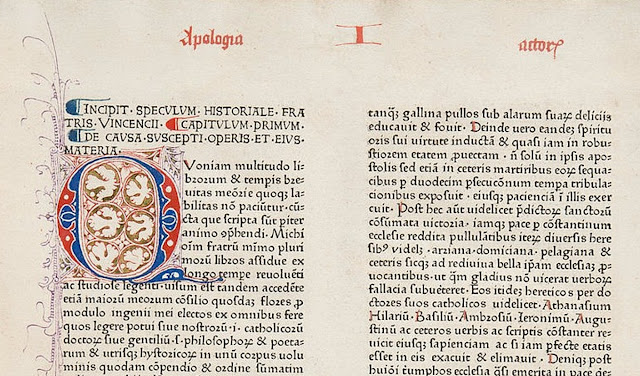 Apologia I actorꝝ
INCIPIT · SPECULVM · HISTORIALE · FRA
TRIS · VINCENCII · CAPITULVM · PRIMVM ·
DE CAVSA · SVSCEPTI · OPERIS · ET · EIVS ·
MATERIA ·
Voniam multitudo li-
brorum & tempis bre-
uitas meōrie quoqꝫ la-
bilitas nō paciūtur · cū-
cta que scripta sūt piter
animo ꝯphendi · Michi
oīm fratrū mīmo pluri
morū libros assidue ex
longo tempe reuoluēti
ac studiose legenti · uisum est tandem accedēte
etiā maiorū meorum cōsilio quosdaꝫ flores ꝓ
modulo ingenii mei electos ex omnibus fere
quos legere potui siue nostrorū · i · catholicorū
doctoꝝ siue gentiliū · s · philosophoꝝ & poeta-
rum & utrisqꝫ hystoricoꝝ in unū corpus uolu
minis quodam cōpendio & ordine sūmatim
tanqꝫ gallina pullos sub alarum suaꝝ deliciis
educauit & fouit · Deinde uero eandeꝫ spiritu
oris sui uirtute inductā & quasi iam in robu-
stiorem etatem ꝓuectam · n̄ solū in ipsis apos-
tolis sed etiā in ceteris martiribus eoꝝ sequa-
cibus p duodecim psecuconum tempa tribula-
cionibus exposuit · eiusqꝫ pacienciā ī illis exer
cuit · Post hec aūt uidelicet pdictoꝝ sanctorū
cōsūmata uictoria · iamqꝫ pace p cōstantinum
ecclesie reddita pullulātibus iteꝝ diuersis here
sibꝰ videlꝫ · arriana · domiciana · pelagiana &
ceteris sicqꝫ ad rediuiua bella ipam ecclesiaꝫ ꝓ-
uocantibus · ut qm̄ gladius nō uicerat uerboꝝ
fallacia subuerteret · Eos itideꝫ hereticos per do
ctores suos catholicos uidelicet · Athanasium
Hilariū · Basiliū · Ambrosiū · Ieronimū · Augu-
stinū ac ceteros uerbis ac scriptis cōstanter re-
uicit eiusqꝫ sapienciam ac si iam pfecte etatis
esset in eis exacuit & elimauit · Deniqꝫ post